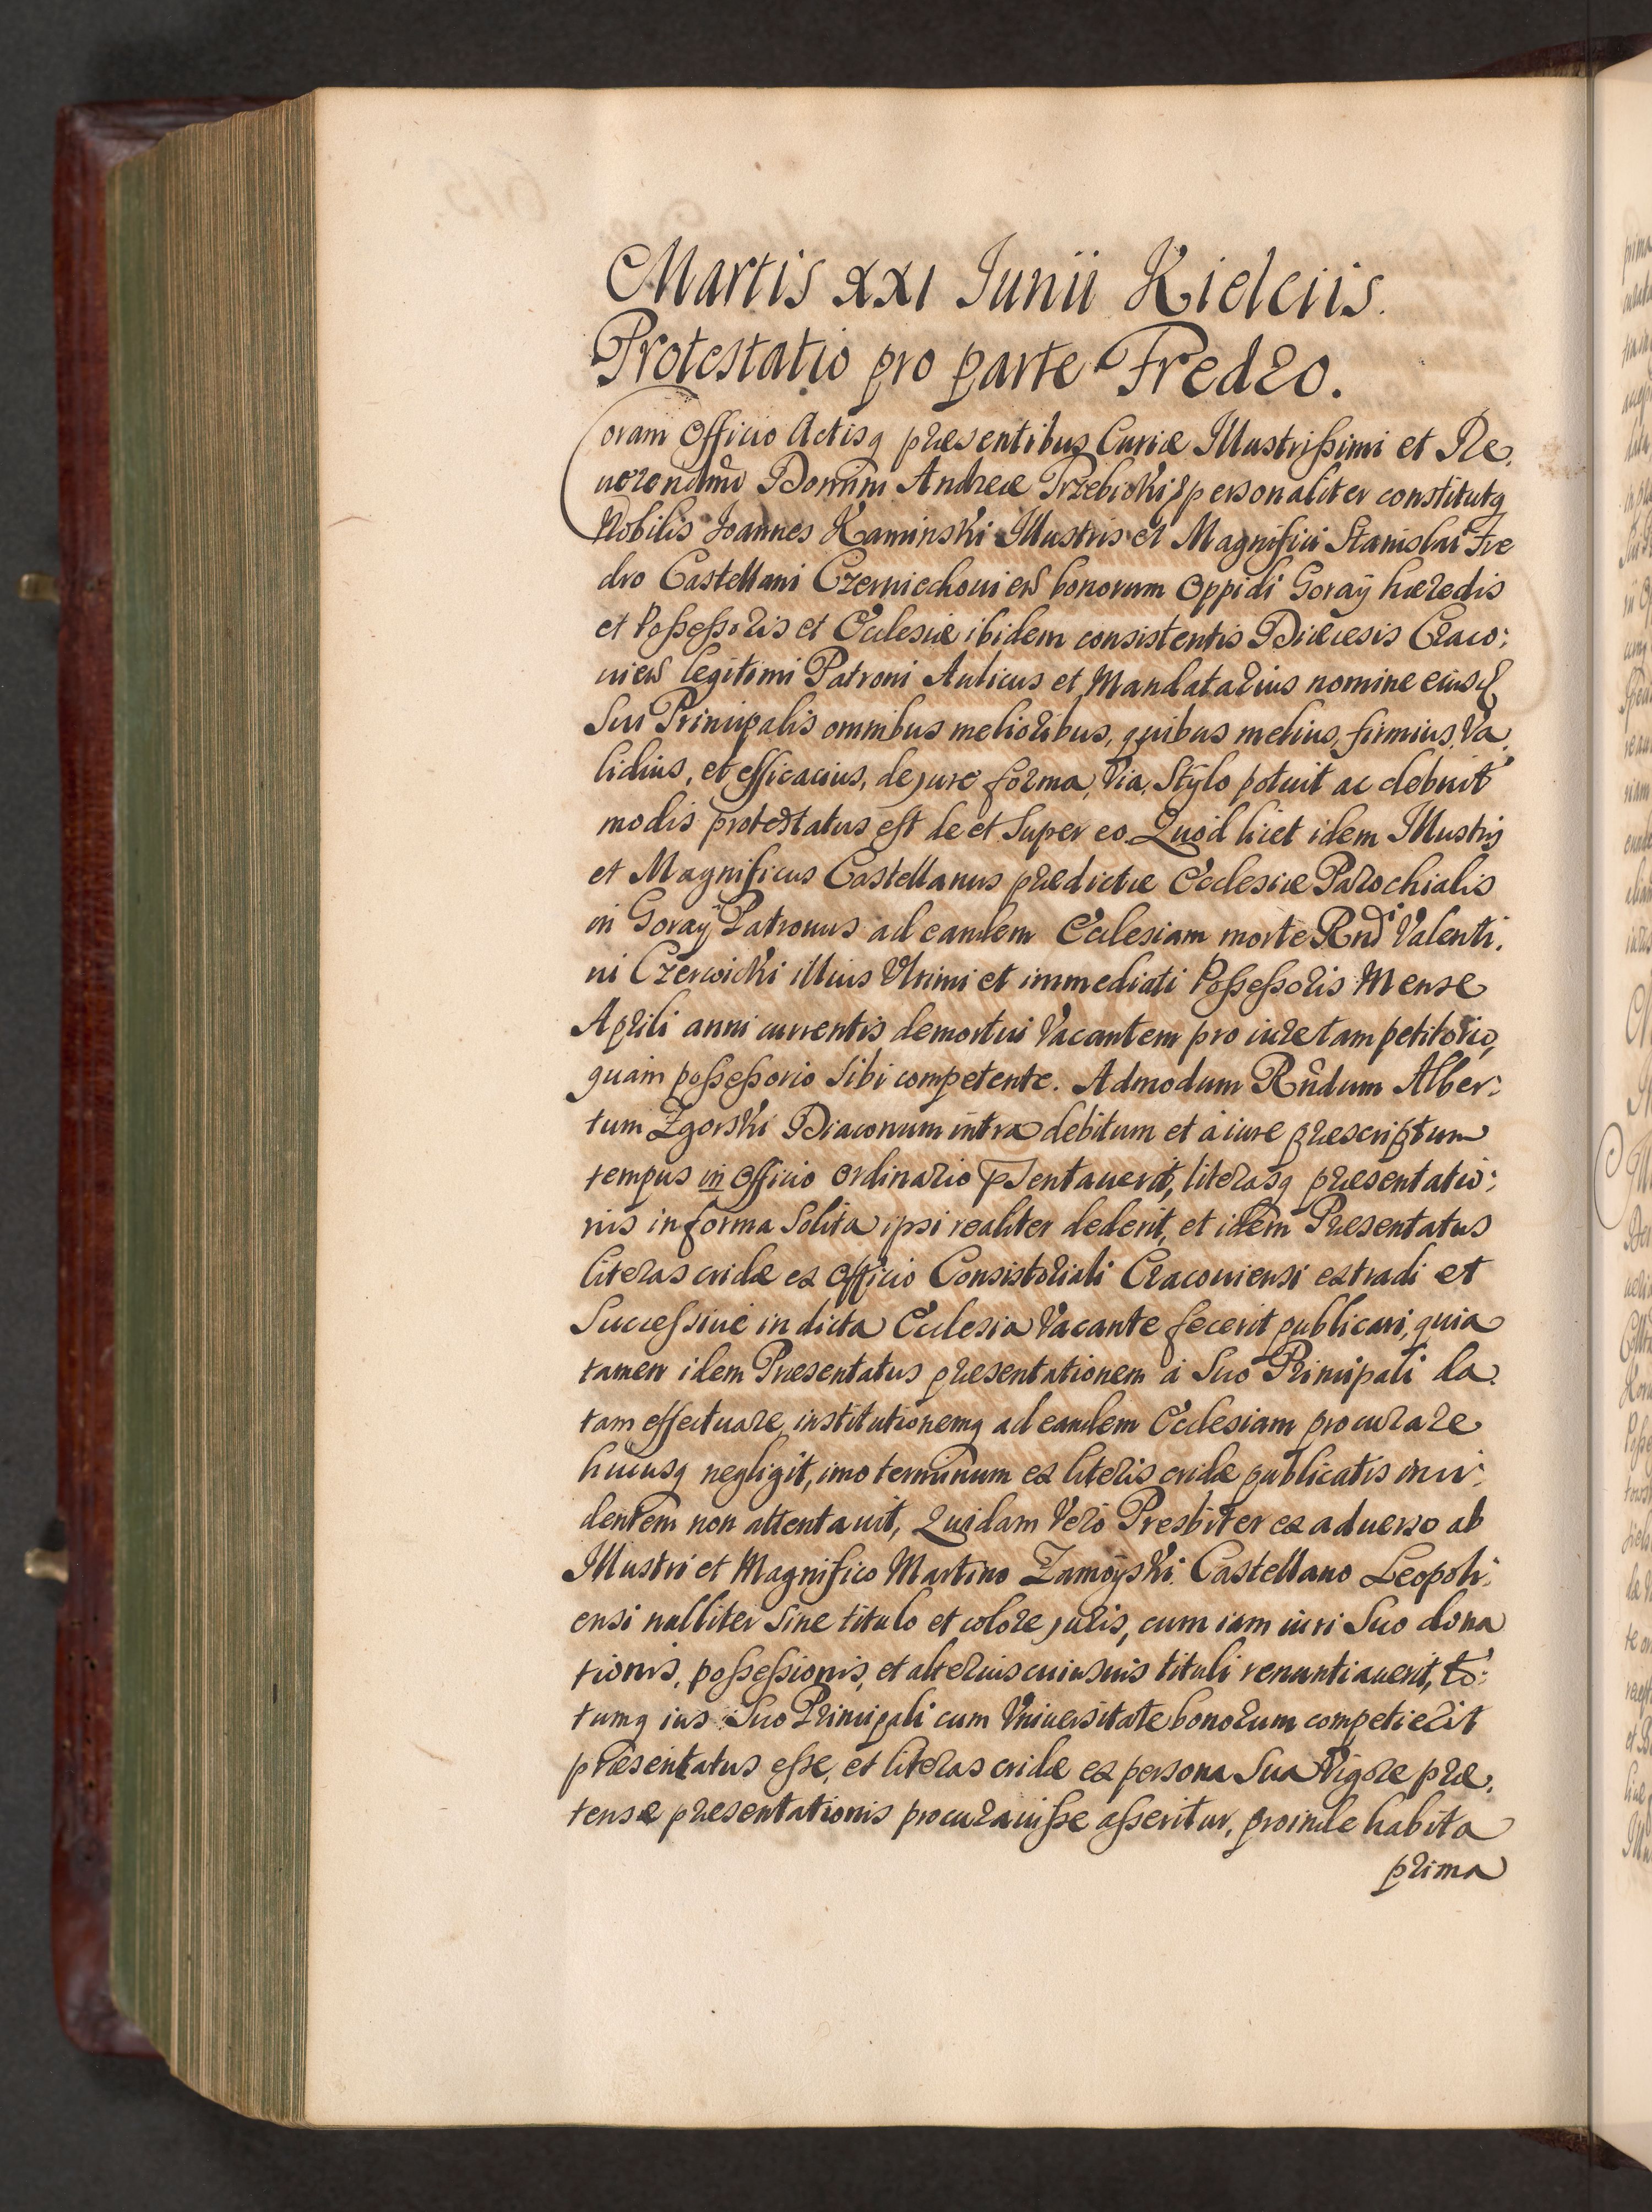 Martis XXI Junii Kielciis.
Protestatio pro parte Fredro.
Coram Officio Actisq præsentibus Curiæ Illustrissimi et Re.
uerendmi Domini Andreæ Trzebicki personaliter constitutq
Nobilis Joannes Kaminski Illustris et Magnifici Stanislai Fre
dro Castellani Czerniechouien bonorum Oppidi Goraÿ hæredis
et Possessoris et Ecclesiæ ibidem consistentis Diæcesis Craco:
uien legitimi Patroni Aulicus et Mandatarius nomine eiusd
Sui Principalis omnibus melioribus, quibus melius, firmius, Va.
lidius, et efficacius, de jure forma, Via, Stÿlo potuit ac debuit
modis protestatus est de et Super eo. Quod licet idem Illustris
et Magnificus Castellanus prædictæ Ecclesiæ Parochialis
in Goraÿ Patronus ad eandem Ecclesiam morte Rndi Valenti.
ni Czerwicki illius Vltimi et immediati Possessoris Mense
Aprili anni currentis demortui Vacantem pro iure tam petitorio,
quam possessorio Sibi competente. Admodum Rndum Alber:
tum Zgorski Diaconum intra debitum et à iure præscriptum
tempus in Officio Ordinario pSentauerit, literasq præsentatio:
nis in forma Solita ipsi realiter dederit, et idem Præsentatus
literas cridæ ex Officio Consistoriali Cracouiensi extradi et
Successiuè in dicta Ecclesia Vacante fecerit publicari, quia
tamen idem Præsentatus præsentationem à Suo Principali da.
tam effectuare, institutionemq ad eandem Ecclesiam procurare
hucusq negligit, imo terminum ex literis cridæ publicatis inci:
dentem non attentauit, Quidam Verò Presbiter ex aduerso ab
Illustri et Magnifico Martino Zamoÿski Castellano Leopoli:
ensi nulliter Sine titulo et colore juris, cum iam iuri Suo dona
tionis, possessionis, et alterius cuiusuis tituli renuntiauerit, to:
tumq ius Suo Principali cum Vniuersitate bonorum competierit
præsentatus esse, et literas cridæ ex persona Sua Vigore præ:
tensæ præsentationis procurauisse asseritur, proinde habita
prima